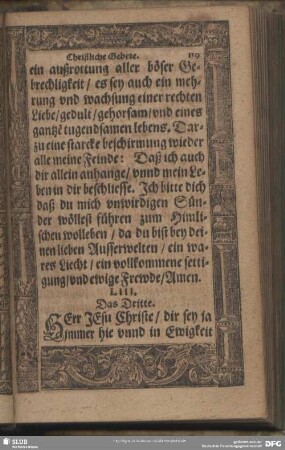 Christliche Gebete. 119
ein außrottung aller böser Ge-
brechligkeit / es sey auch ein meh-
rung vnd wachsung einer rechten
Liebe / gedult / gehorsam / vnd eines
gantzē tugendsamen lebens. Dar-
zu eine starcke beschirmung wieder
alle meine Feinde: Daß ich auch
dir allein anhange / vnnd mein Le-
ben in dir beschliesse. Ich bitte dich
daß du mich vnwirdigen Sün-
der wöllest führen zum Himli-
schen wolleben / da du bist bey dei-
nen lieben Ausserwelten / ein wa-
res Liecht / ein vollkommene setti-
gung / vnd ewige Frewde / Amen.
LIII.
Das Dritte.
HErr JEsu Christe / dir sey ja
jmmer hie vnnd in Ewigkeit
SLUB
DFG